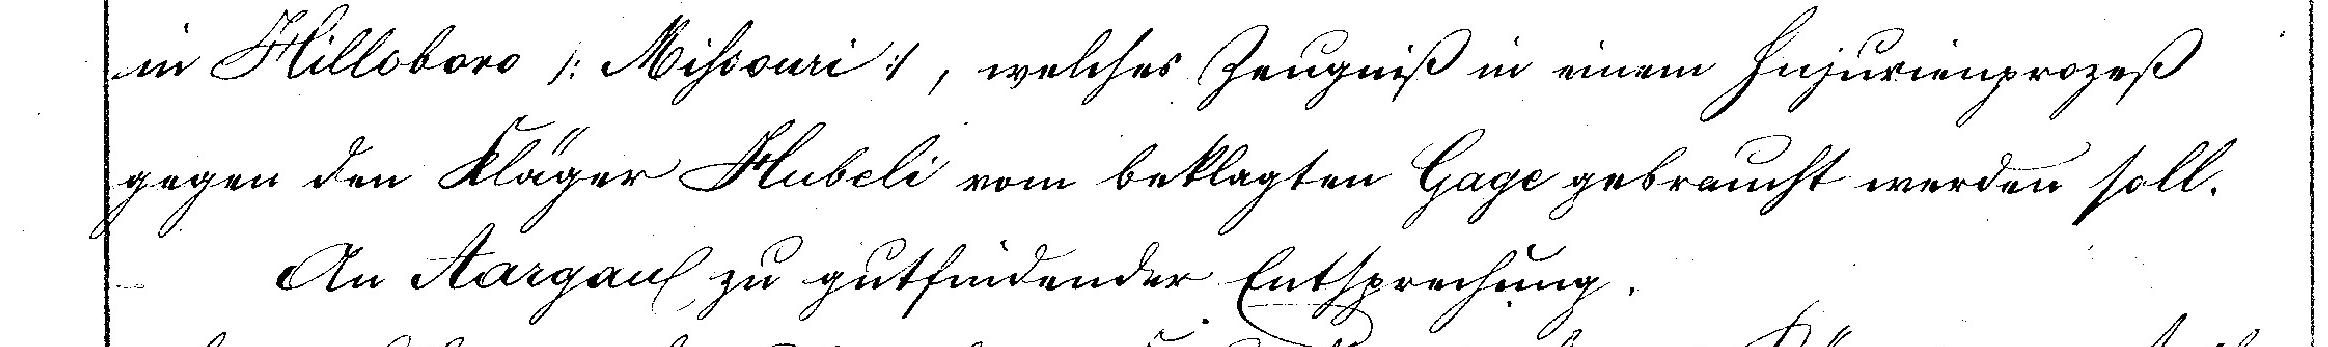 in Hillsboro /: Missouri :/, welches Zeugniß in einem Injurienprozeß
gegen den Kläger Hubeli vom beklagten Gage gebraucht werden soll.
An Aargau, zu gutfindender Entsprechung.